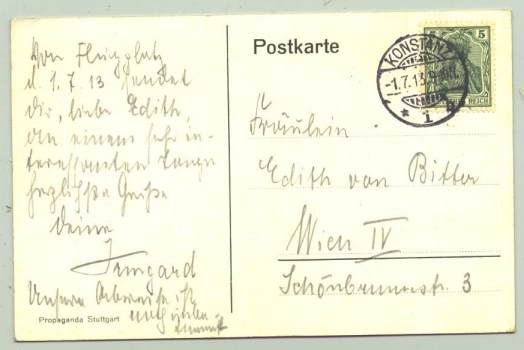 Vom Flugplatz
d. 1.7.13 sendet
dir, liebe Edith,
an einem sehr in-
teressanten Tage
herzlichste Grüße
Deine
Irmgard
Unsere Abreise ist
noch
Propaganda Stuttgart
Postkarte
KONSTANZ
-1.7.13.
* 1
5
REICH
Fräulein
Edith von Bitter
Wien IV
Schönbrunnerstr. 3